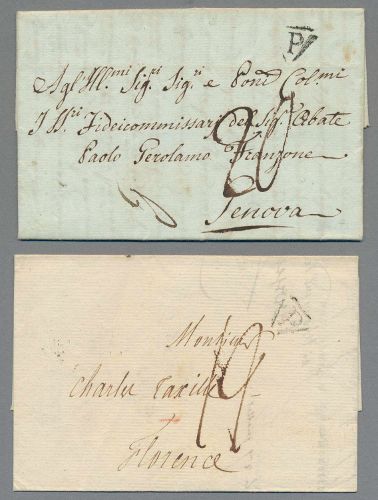 P
Agl' Ill.mi Sig.ri Sig.ri e Pron Col.mi
I SS.ri Fidecommissarj del Sig.r Abate
Paolo Gerolamo Franzone
Genova
Monsieur
Charles
Florence